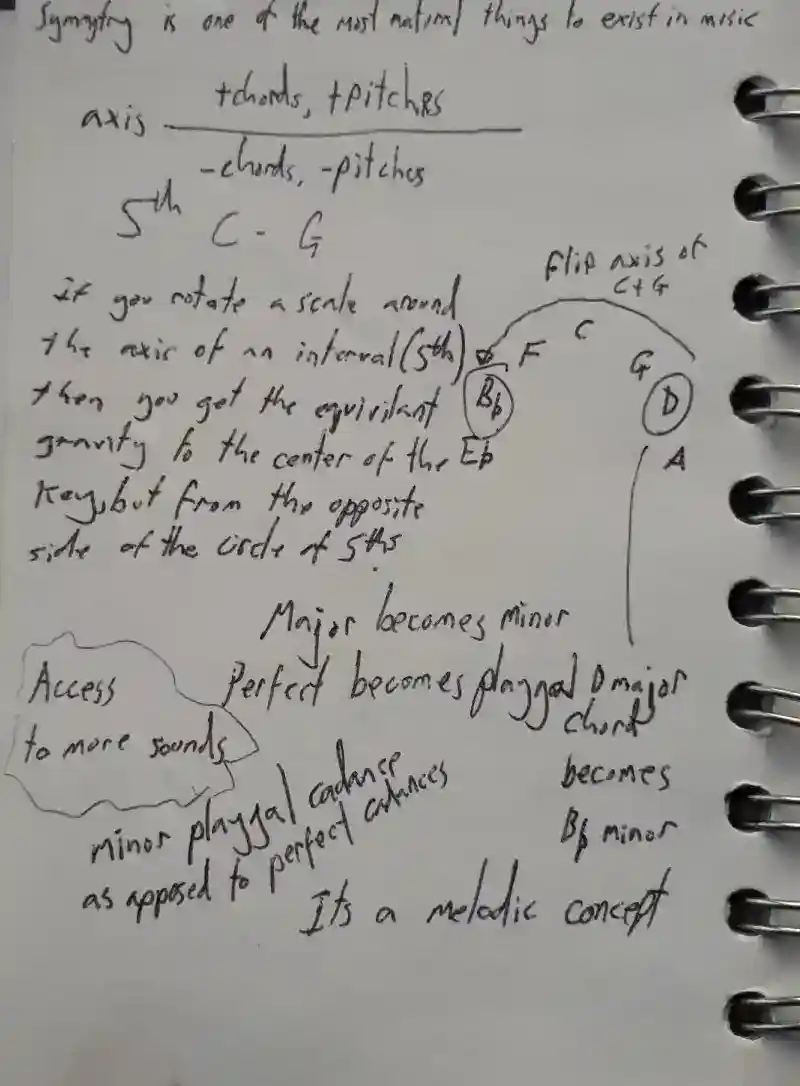 Symmytry is one of the most natural things to exist in music
+chords, +pitches
axis
-chords, -pitches
5th C - G
if you rotate a scale around
the axis of an interval (5th)
then you get the equivilant
gravity to the center of the
key, but from the opposite
side of the circle of 5ths
Flip axis of
C+G
C
F
G
Bb
D
Eb
A
Major becomes minor
Perfect becomes playgal
D major
chord
becomes
Bb minor
Access
to more sounds
minor playgal cadance
as apposed to perfect cadances
Its a melodic concept